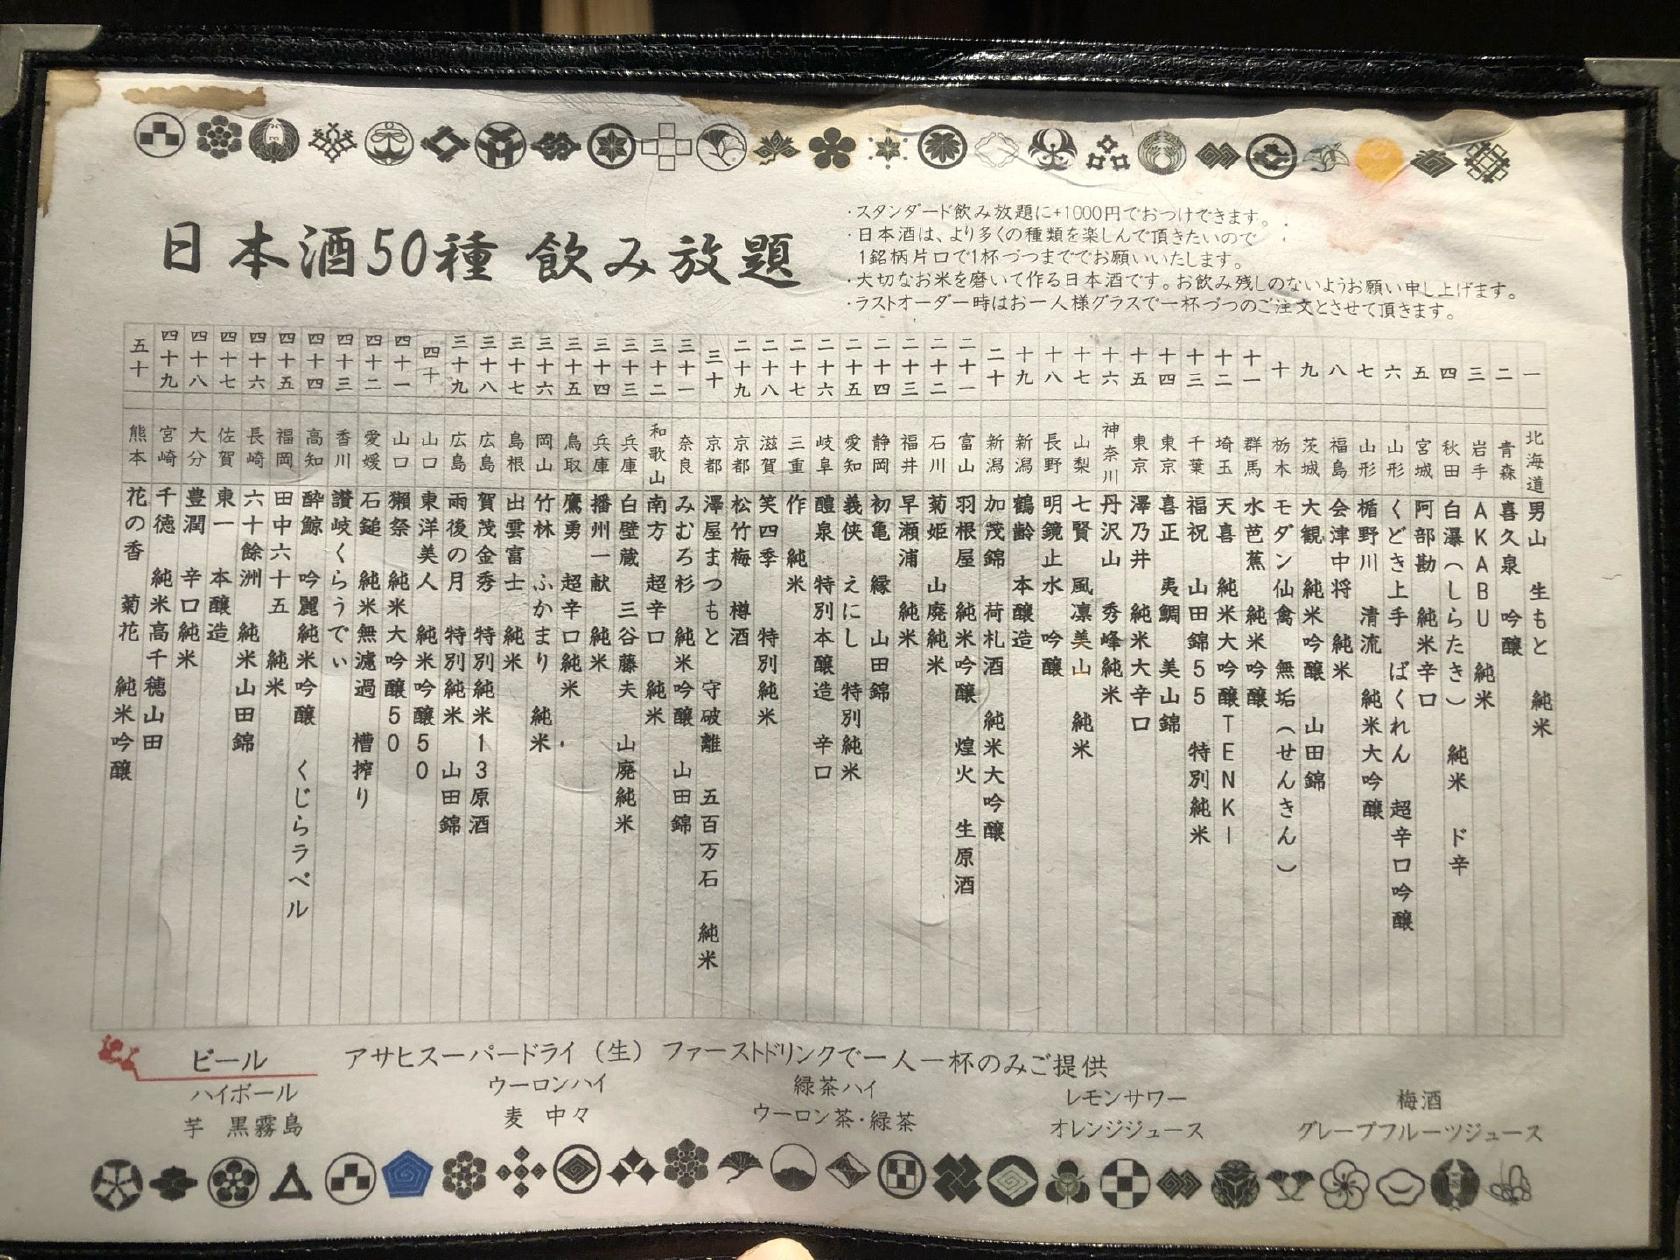 日本酒50種 飲み放題
・スタンダード飲み放題に+1000円でおつけできます。
・日本酒は、より多くの種類を楽しんで頂きたいので
1銘柄片口で1杯づつまででお願いいたします。
・大切なお米を磨いて作る日本酒です。お飲み残しのないようお願い申し上げます。
・ラストオーダー時はお一人様グラスで一杯づつのご注文とさせて頂きます。
一 北海道 男山 生もと 純米
二 青森 喜久泉 吟醸
三 岩手 AKABU 純米
四 秋田 白瀑(しらたき) 純米 ド辛
五 宮城 阿部勘 純米辛口
六 山形 くどき上手 ばくれん 超辛口吟醸
七 山形 楯野川 清流 純米大吟醸
八 福島 会津中将 純米
九 茨城 大観 純米吟醸 山田錦
十 栃木 モダン仙禽 無垢(せんきん)
十一 群馬 水芭蕉 純米吟醸
十二 埼玉 天喜 純米大吟醸TENKI
十三 千葉 福祝 山田錦55 特別純米
十四 東京 喜正 夷鯛 美山錦
十五 東京 澤乃井 純米大辛口
十六 神奈川 丹沢山 秀峰純米
十七 山梨 七賢 風凛美山 純米
十八 長野 明鏡止水 吟醸
十九 新潟 鶴齢 本醸造
二十 新潟 加茂錦 荷札酒 純米大吟醸
二十一 富山 羽根屋 純米吟醸 煌火 生原酒
二十二 石川 菊姫 山廃純米
二十三 福井 早瀬浦 純米
二十四 静岡 初亀 縁 山田錦
二十五 愛知 義侠 えにし 特別純米
二十六 岐阜 醴泉 特別本醸造 辛口
二十七 三重 作 純米
二十八 滋賀 笑四季 特別純米
二十九 京都 松竹梅 樽酒
三十 京都 澤屋まつもと 守破離 五百万石 純米
三十一 奈良 みむろ杉 純米吟醸 山田錦
三十二 和歌山 南方 超辛口 純米
三十三 兵庫 白壁蔵 三谷藤夫 山廃純米
三十四 兵庫 播州一献 純米
三十五 鳥取 鷹勇 超辛口純米
三十六 岡山 竹林 ふかまり 純米
三十七 島根 出雲富士 純米
三十八 広島 賀茂金秀 特別純米13原酒
三十九 広島 雨後の月 特別純米 山田錦
四十 山口 東洋美人 純米吟醸50
四十一 山口 獺祭 純米大吟醸50
四十二 愛媛 石鎚 純米無濾過 槽搾り
四十三 香川 讃岐くらうでぃ
四十四 高知 酔鯨 吟麗純米吟醸 くじらラベル
四十五 福岡 田中六十五 純米
四十六 長崎 六十餘洲 純米山田錦
四十七 佐賀 東一 本醸造
四十八 大分 豊潤 辛口純米
四十九 宮崎 千徳 純米高千穂山田
五十 熊本 花の香 菊花 純米吟醸
ビール アサヒスーパードライ(生) ファーストドリンクで一人一杯のみご提供
ハイボール ウーロンハイ 緑茶ハイ レモンサワー 梅酒
芋 黒霧島 麦 中々 ウーロン茶・緑茶 オレンジジュース グレープフルーツジュース